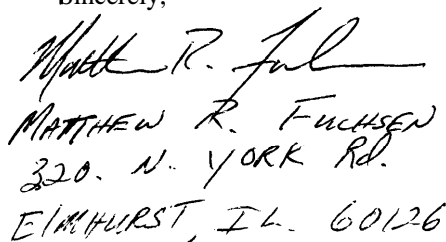 Sincerely,
Matt R. Fuchsen
MATTHEW R. FUCHSEN
320. N. YORK Rd.
ElMHURST, IL. 60126